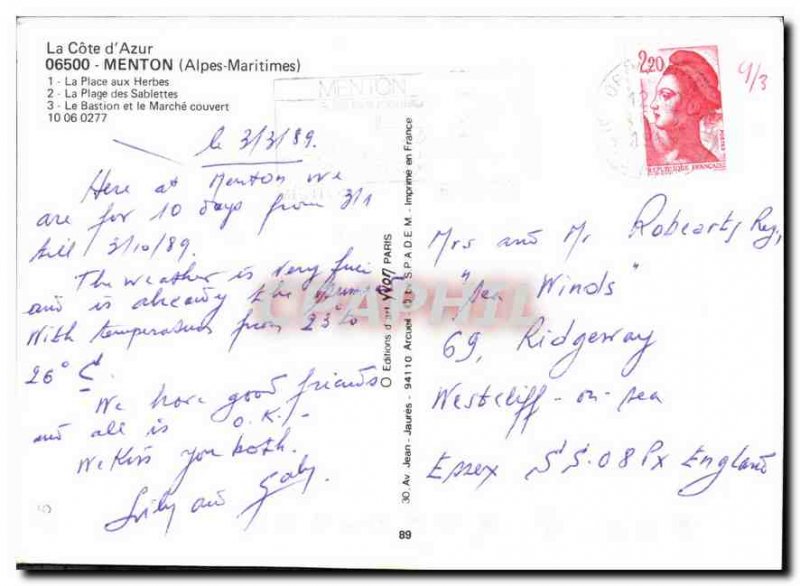 La Côte d'Azur
06500 - MENTON (Alpes-Maritimes)
1 - La Place aux Herbes
2 - La Plage des Sablettes
3 - Le Bastion et le Marché couvert
10 06 0277
le 3/3/89.
Here at Menton We
are for 10 days from 3/1
till 3/10/89.
The weather is very
and is already the
With temperature from 23° to
26° C.
We have good friends
and all is O.K!.
We Kiss you both.
and Gaby
MENTON
2,20
REPUBLIQUE FRANÇAISE
POSTES
4/3
Mrs and Mr Robearts Reg,
"Sea Winds"
69, Ridgeway
Westcliff-on-sea
Essex SS.08Px England
Editions d'art YVON PARIS
30. Av. Jean-Jaurès - 94110 Arcueil S.P.A.D.E.M. - Imprimé en France
89
CPAPHIL